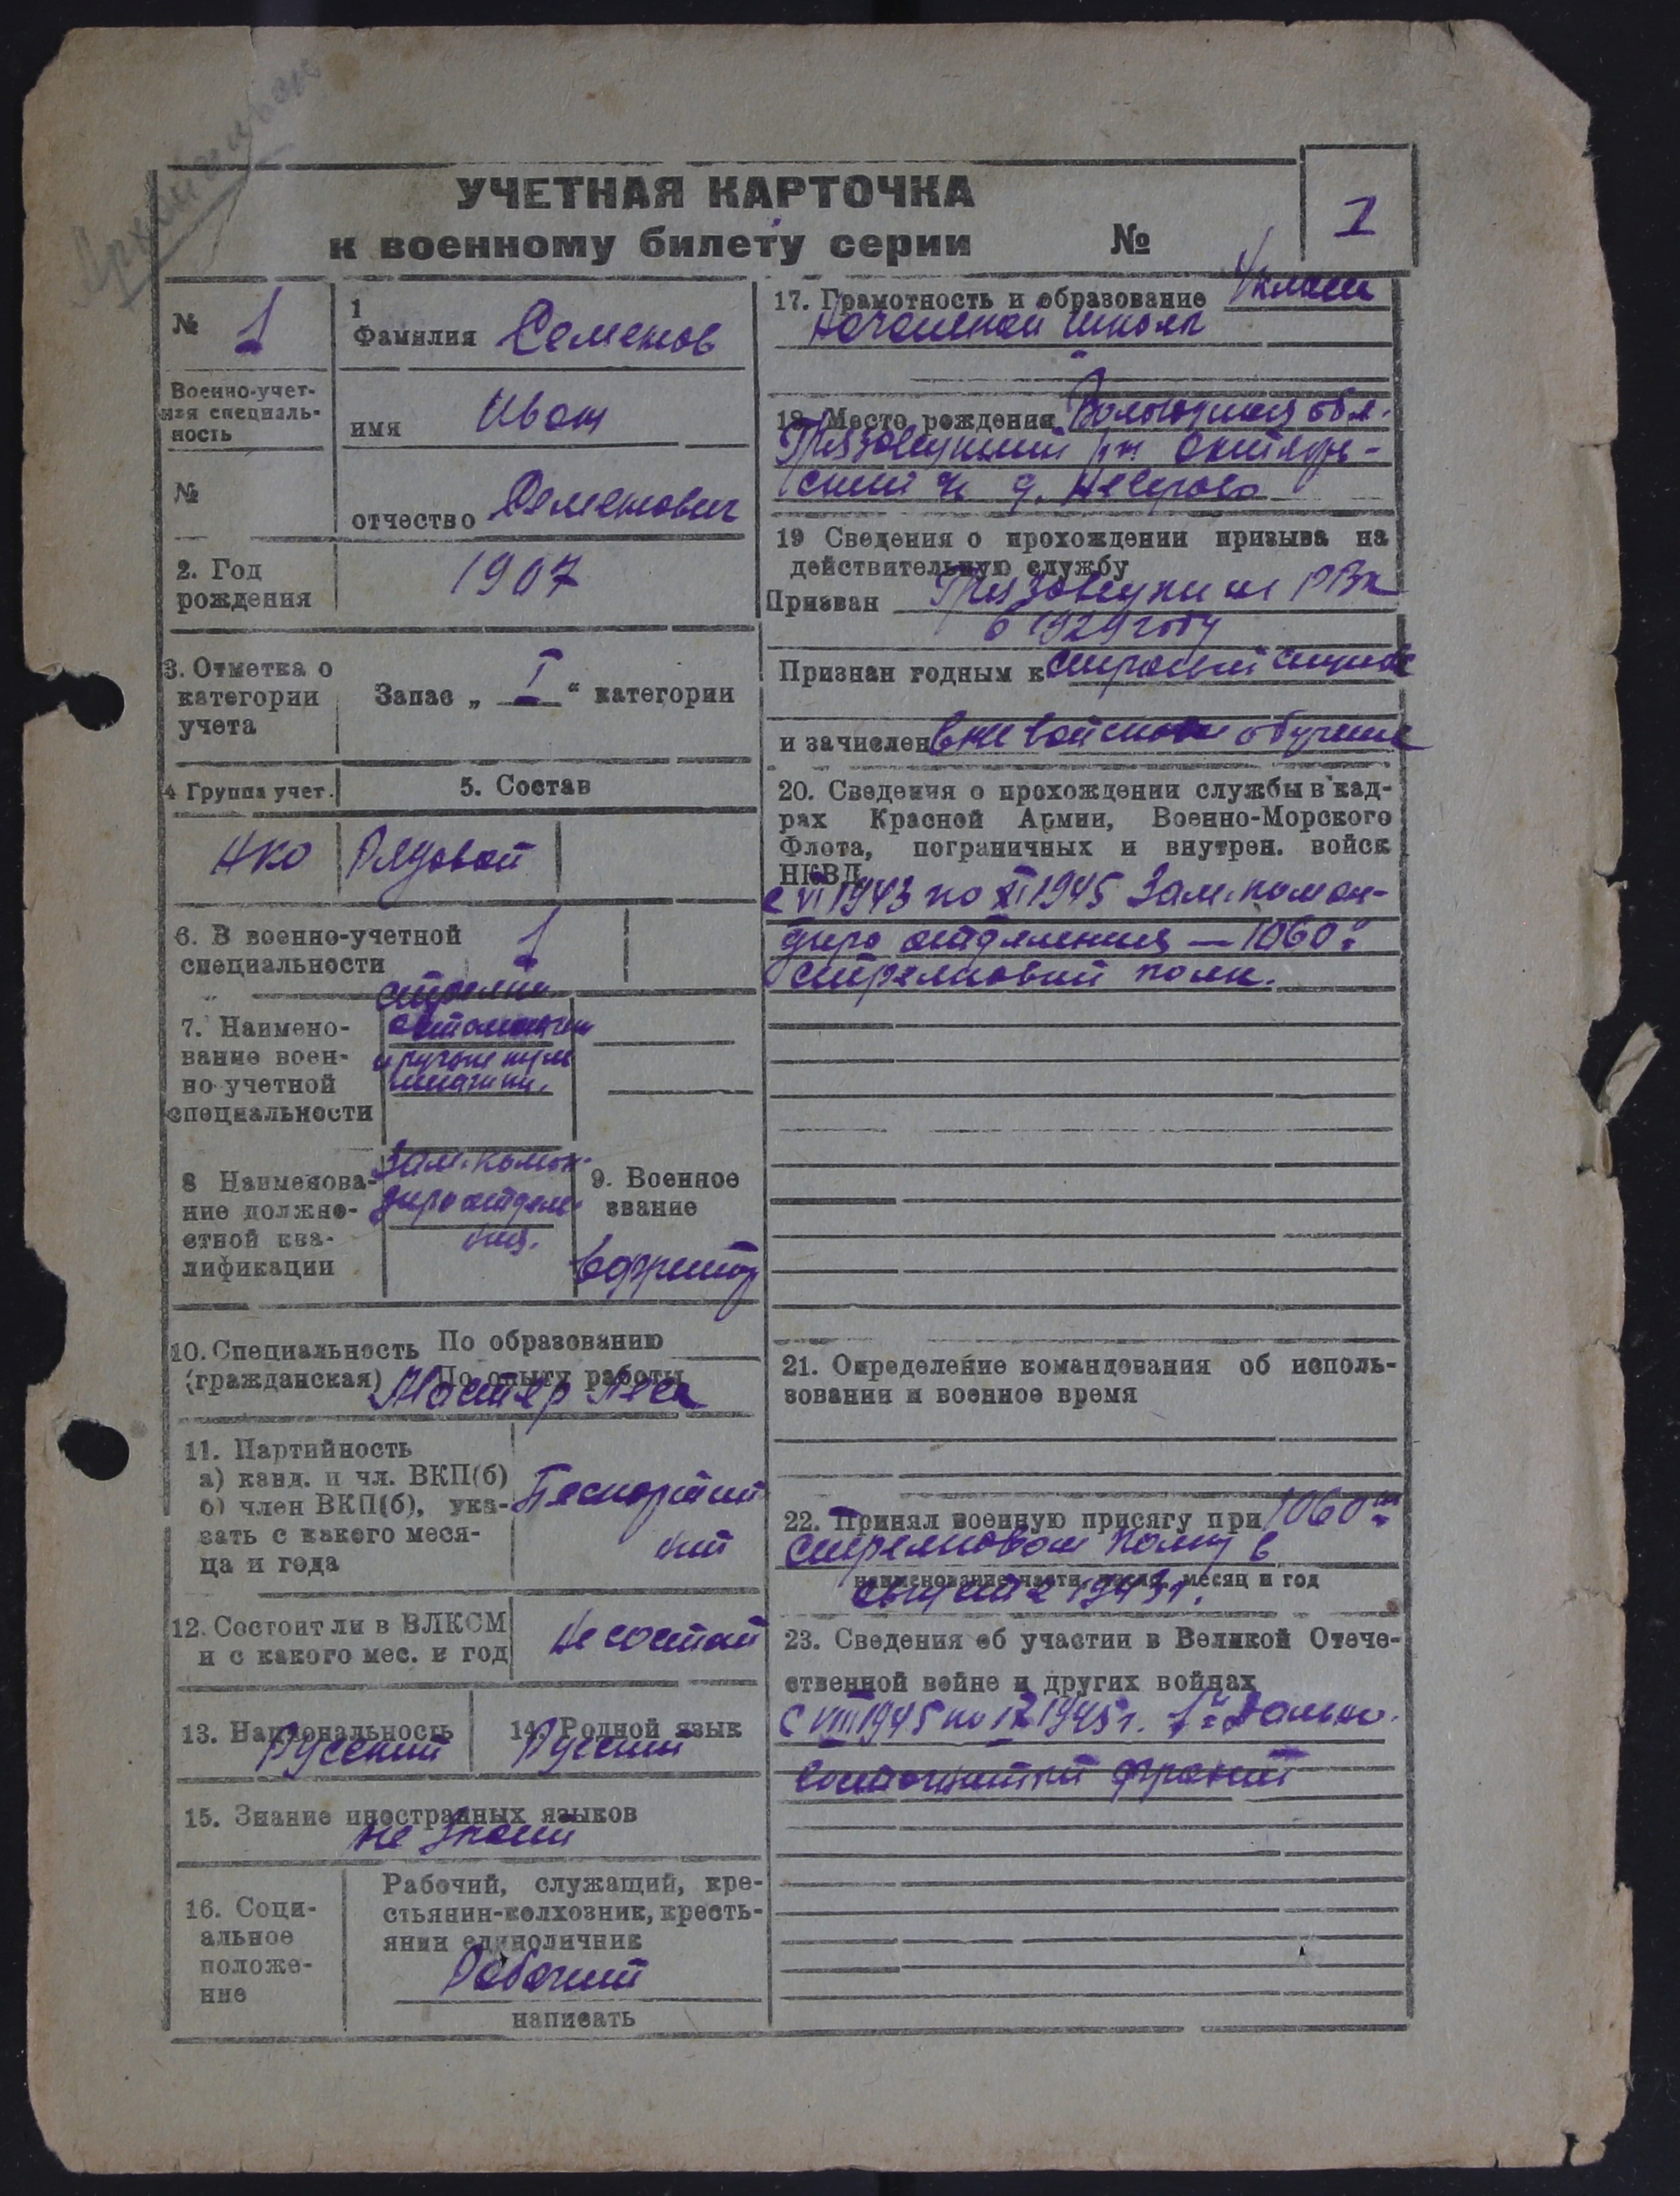 УЧЕТНАЯ КАРТОЧКА
к военному билету серии №
1
№ 1
Военно-учет-
ная специаль-
ность
№
1
Фамилия Семенов
имя Иван
отчество Семенович
2. Год
рождения
1907
3. Отметка о
категории
учета
Запас „ I “ категории
4 Группа учет.
5. Состав
НКО
Рядовой
6. В военно-учетной
специальности
1
7. Наимено-
вание воен-
но учетной
специальности
стрелки
автоматчики
и ручные пуле
метчики.
8 Наименова-
ние должно-
стной ква-
лификации
Зам. коман-
дира отделе-
ния.
9. Военное
звание
Ефрейтор
10. Специальность
(гражданская)
По образованию
По опыту работы
Мастер леса
11. Партийность
а) канд. и чл. ВКП(б)
б) член ВКП(б), ука-
зать с какого меся-
ца и года
Беспартий
ный
12. Состоит ли в ВЛКСМ
и с какого мес. и год
Не состоит
13. Национальность
Русский
14. Родной язык
Русский
15. Знание иностранных языков
не знает
16. Соци-
альное
положе-
ние
Рабочий, служащий, кре-
стьянин-колхозник, кресть-
янин единоличник
Рабочий
написать
17. Грамотность и образование 4 класса
Начальной школы
18. Место рождения Вологодская обл.
Грязовецкий р-н Октябрь-
ский с/с д. Неверово
19 Сведения о прохождении призыва на
действительную службу
Призван Грязовецким РВК
в 1929 году
Признан годным к строевой службе
и зачислен вневойсковое обучение
20. Сведения о прохождении службы в кад-
рах Красной Армии, Военно-Морского
Флота, пограничных и внутрен. войск
НКВД
с VI 1943 по XI 1945 Зам. коман-
дира отделения — 1060й
стрелковый полк.
21. Определение командования об исполь-
зовании и военное время
22. Принял военную присягу при 1060м
стрелковом полку в
наименование части, число, месяц и год
августе 1943 г.
23. Сведения об участии в Великой Отече-
ственной войне и других войнах
С VIII 1945 по IX 1945 г. 1й Дальне.
восточный фронт